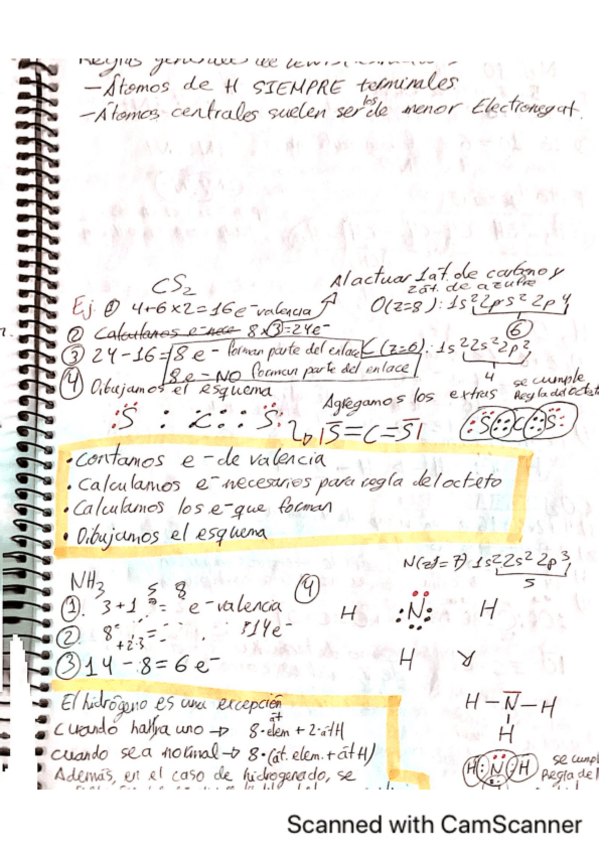 Reglas generales de Lewis
- Átomos de H SIEMPRE terminales
- Átomos centrales suelen ser los de menor Electronegat.
CS2
Al actuar 1 at. de carbono y
2 at. de azufre
Ej. ① 4+6x2=16 e- valencia
O(z=8): 1s² 2ps² 2p⁴
⑥
② Calculamos e- nece 8x3=24e-
③ 24-16=8 e- forman parte del enlace
C(z=6): 1s² 2s² 2p²
8e- NO forman parte del enlace
4
④ Dibujamos el esquema
Agregamos los extras
se cumple
Regla del octeto
:S : C : : S:
|S=C=S|
:S::C::S:
• Contamos e- de valencia
• Calculamos e- necesarios para regla del octeto
• Calculamos los e- que forman
• Dibujamos el esquema
N(z=7) 1s² 2s² 2p³
5
NH3
5 8
①. 3+1 = e- valencia
④
H :N: H
②. 8 +2·3 = 14e-
H
③ 14-8=6e-
El hidrógeno es una excepción
H-N-H
H
cuando halla uno → 8·elem + 2·átH
cuando sea normal → 8·(át. elem. + át H)
H:N:H
se cumpl
Regla de l
Además, en el caso de hidrogenado, se
Scanned with CamScanner